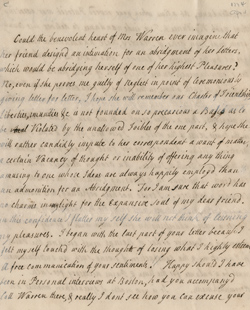 Could the benevolent heart of Mrs Warren ever imagine that
her friend design'd an intimation for an abridgment of her letters,
which would be abridging herself of one of her highest Pleasures?
No, even if she proves me guilty of neglect in point of Ceremonious
giving letter for letter, I hope she will remember our Charter of Friendship
Liberties, is not founded on so precarious a Basis as to
be Violated by the unallowed foibles of the one part, & hope she
will rather candidly impute to her correspondent a want of matter,
a certain Vacancy of thought or inability of offering any thing
amusing to one whose Ideas are always happily employed than
an admonition for an Abridgment. For I am sure that word has
no charms for the expansive soul of my dear friend.
I flatter my self she will not think of lessening
my pleasures. I began with the last part of your letter because I
felt myself touch'd with the thought of losing what I highly esteem
A free communication of your sentiments. Happy should I have
been in Personal interviews at Boston, had you accompany'd
Coll Warren there, & really I dont see how you can excuse your